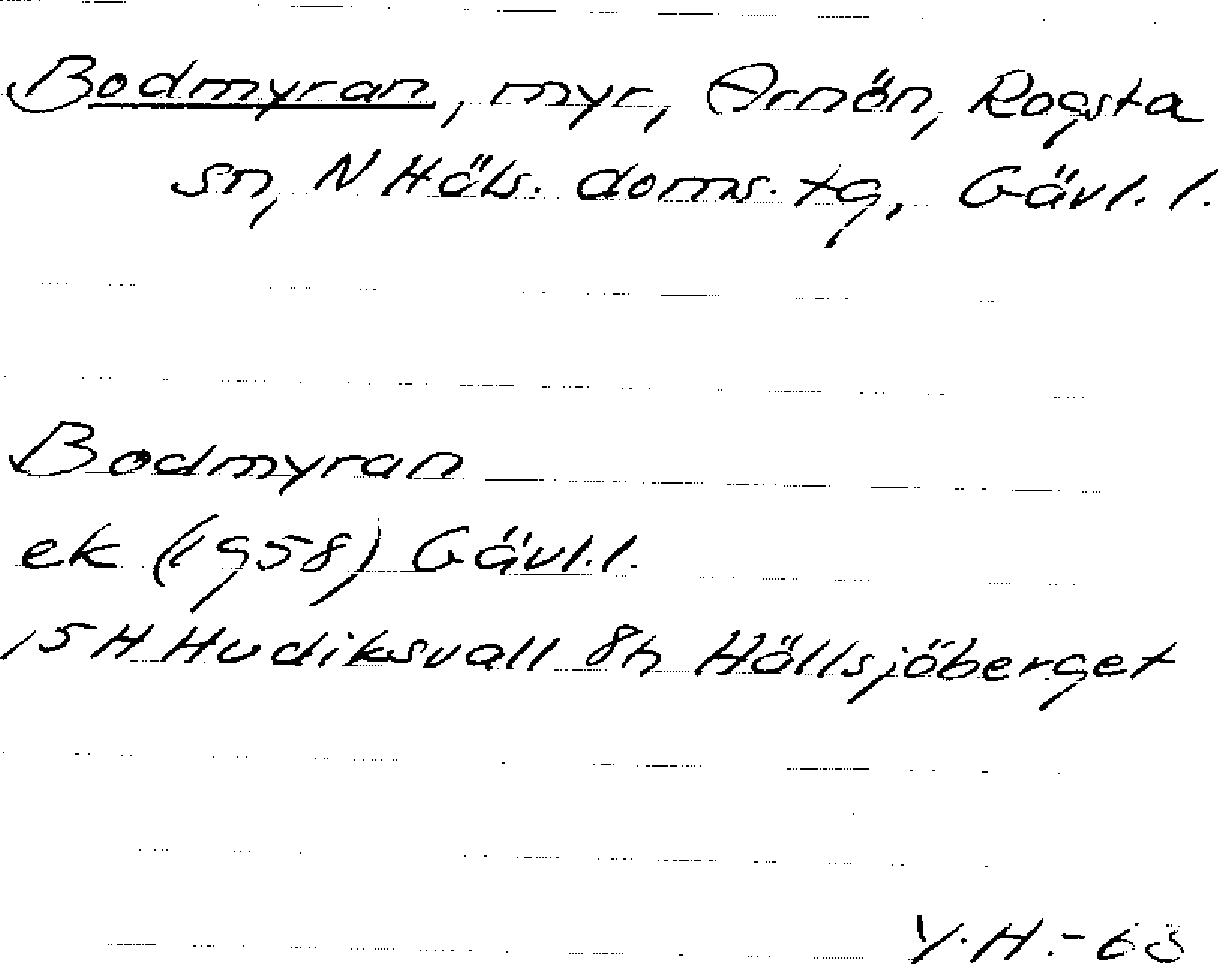 Bodmyran, myr, Arnön, Rogsta
sn, N Häls. doms. tg, Gävl. l.
Bodmyran
ek (1958) Gävl. l.
15 H Hudiksvall 8h Hällsjöberget
Y.H.-63